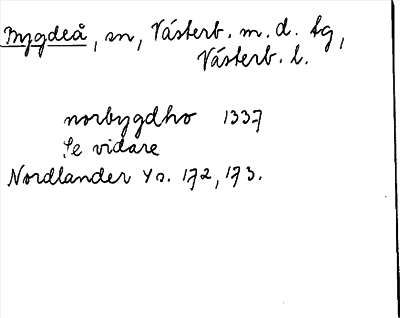 Bygdeå, sn, Västerb. m. d. tg,
Västerb. l.
norbygdho 1337
Se vidare
Nordlander Yo. 172, 173.